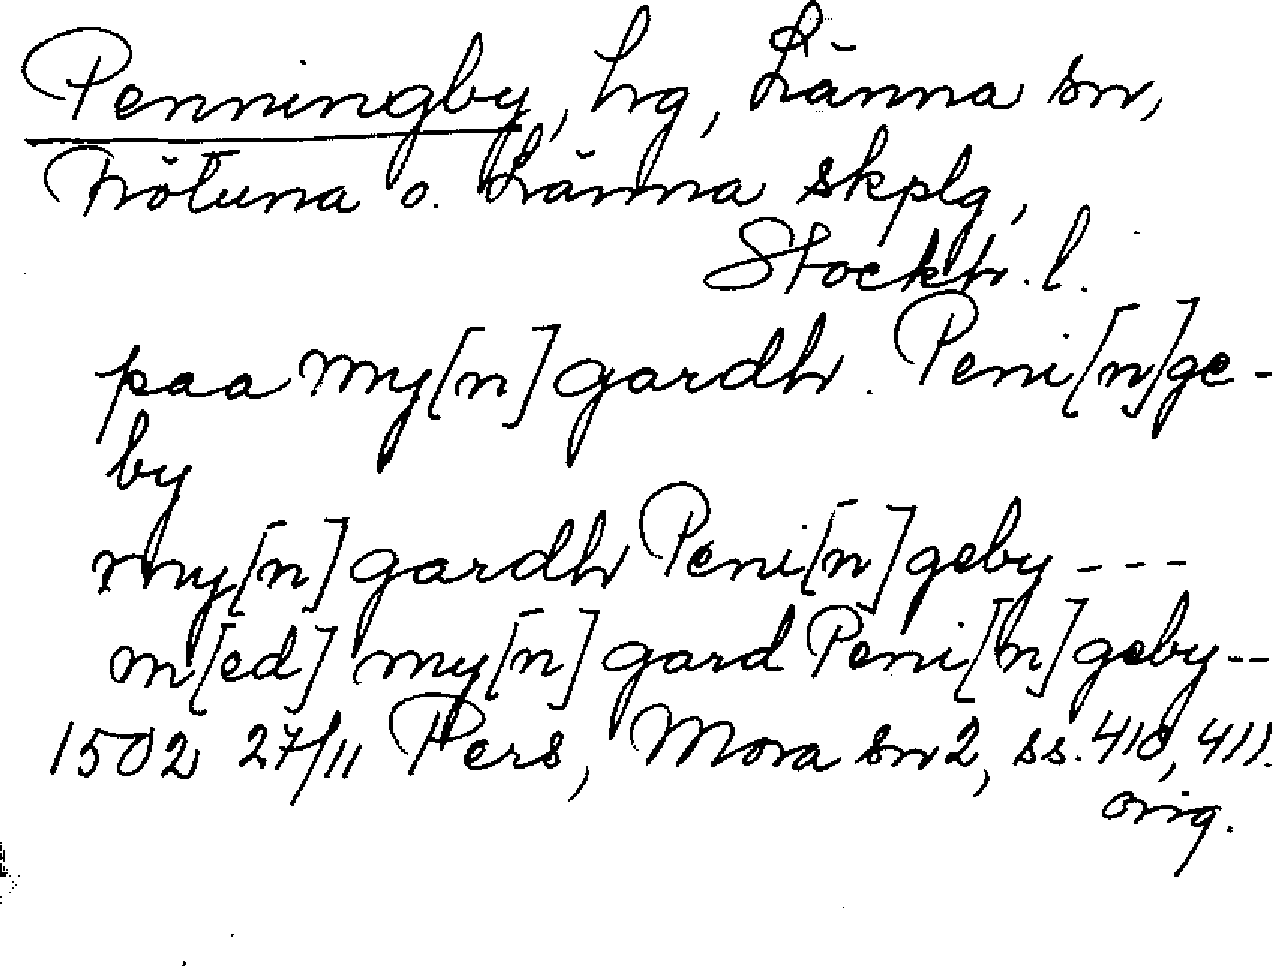 Penningby, hg, Länna sn,
Frötuna o. Länna skplg,
Stockh. l.
paa my[n]gardh. Peni[n]ge-
by
my[n]gardh Peni[n]geby ---
m[ed] my[n]gard Peni[n]geby--
1502 27/11 Pers, Mora sn 2, ss. 410, 411.
orig.